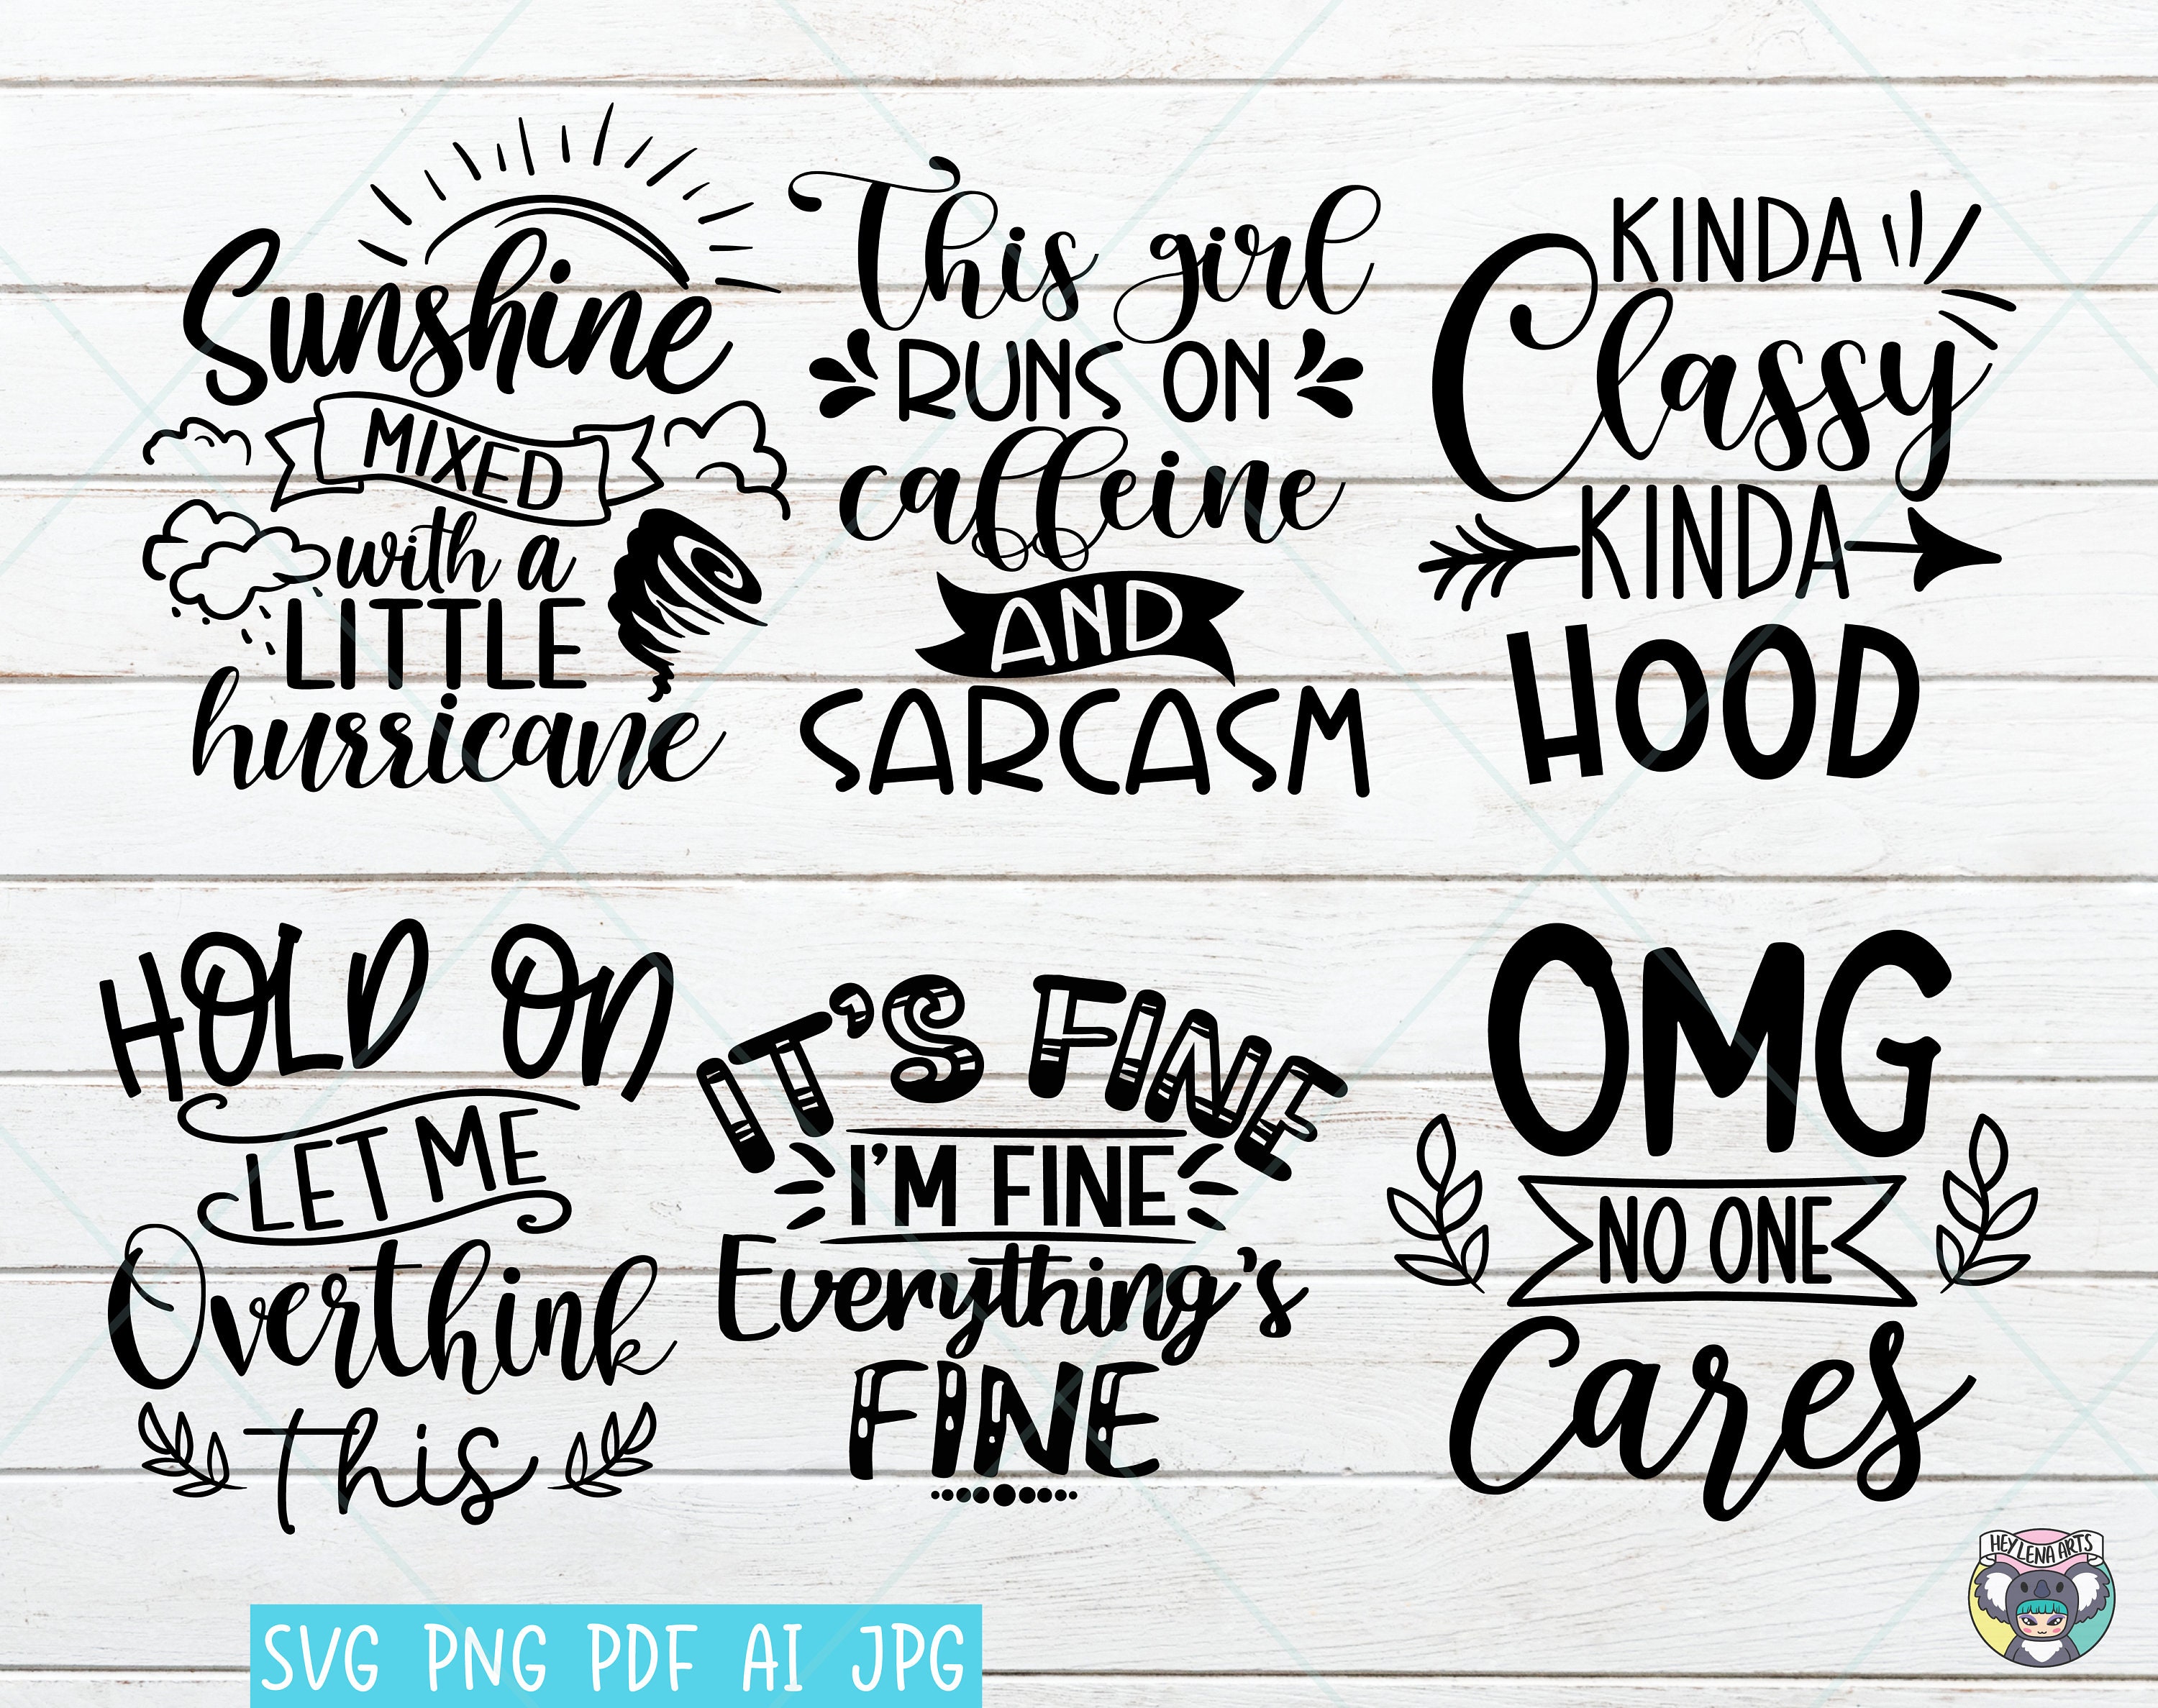 Sunshine
MIXED
with a
LITTLE
hurricane
This girl
RUNS ON
caffeine
AND
SARCASM
KINDA
Classy
KINDA
HOOD
HOLD ON
LET ME
Overthink
this
IT'S FINE
I'M FINE
Everything's
FINE
OMG
NO ONE
Cares
HEYLENA ARTS
SVG PNG PDF AI JPG